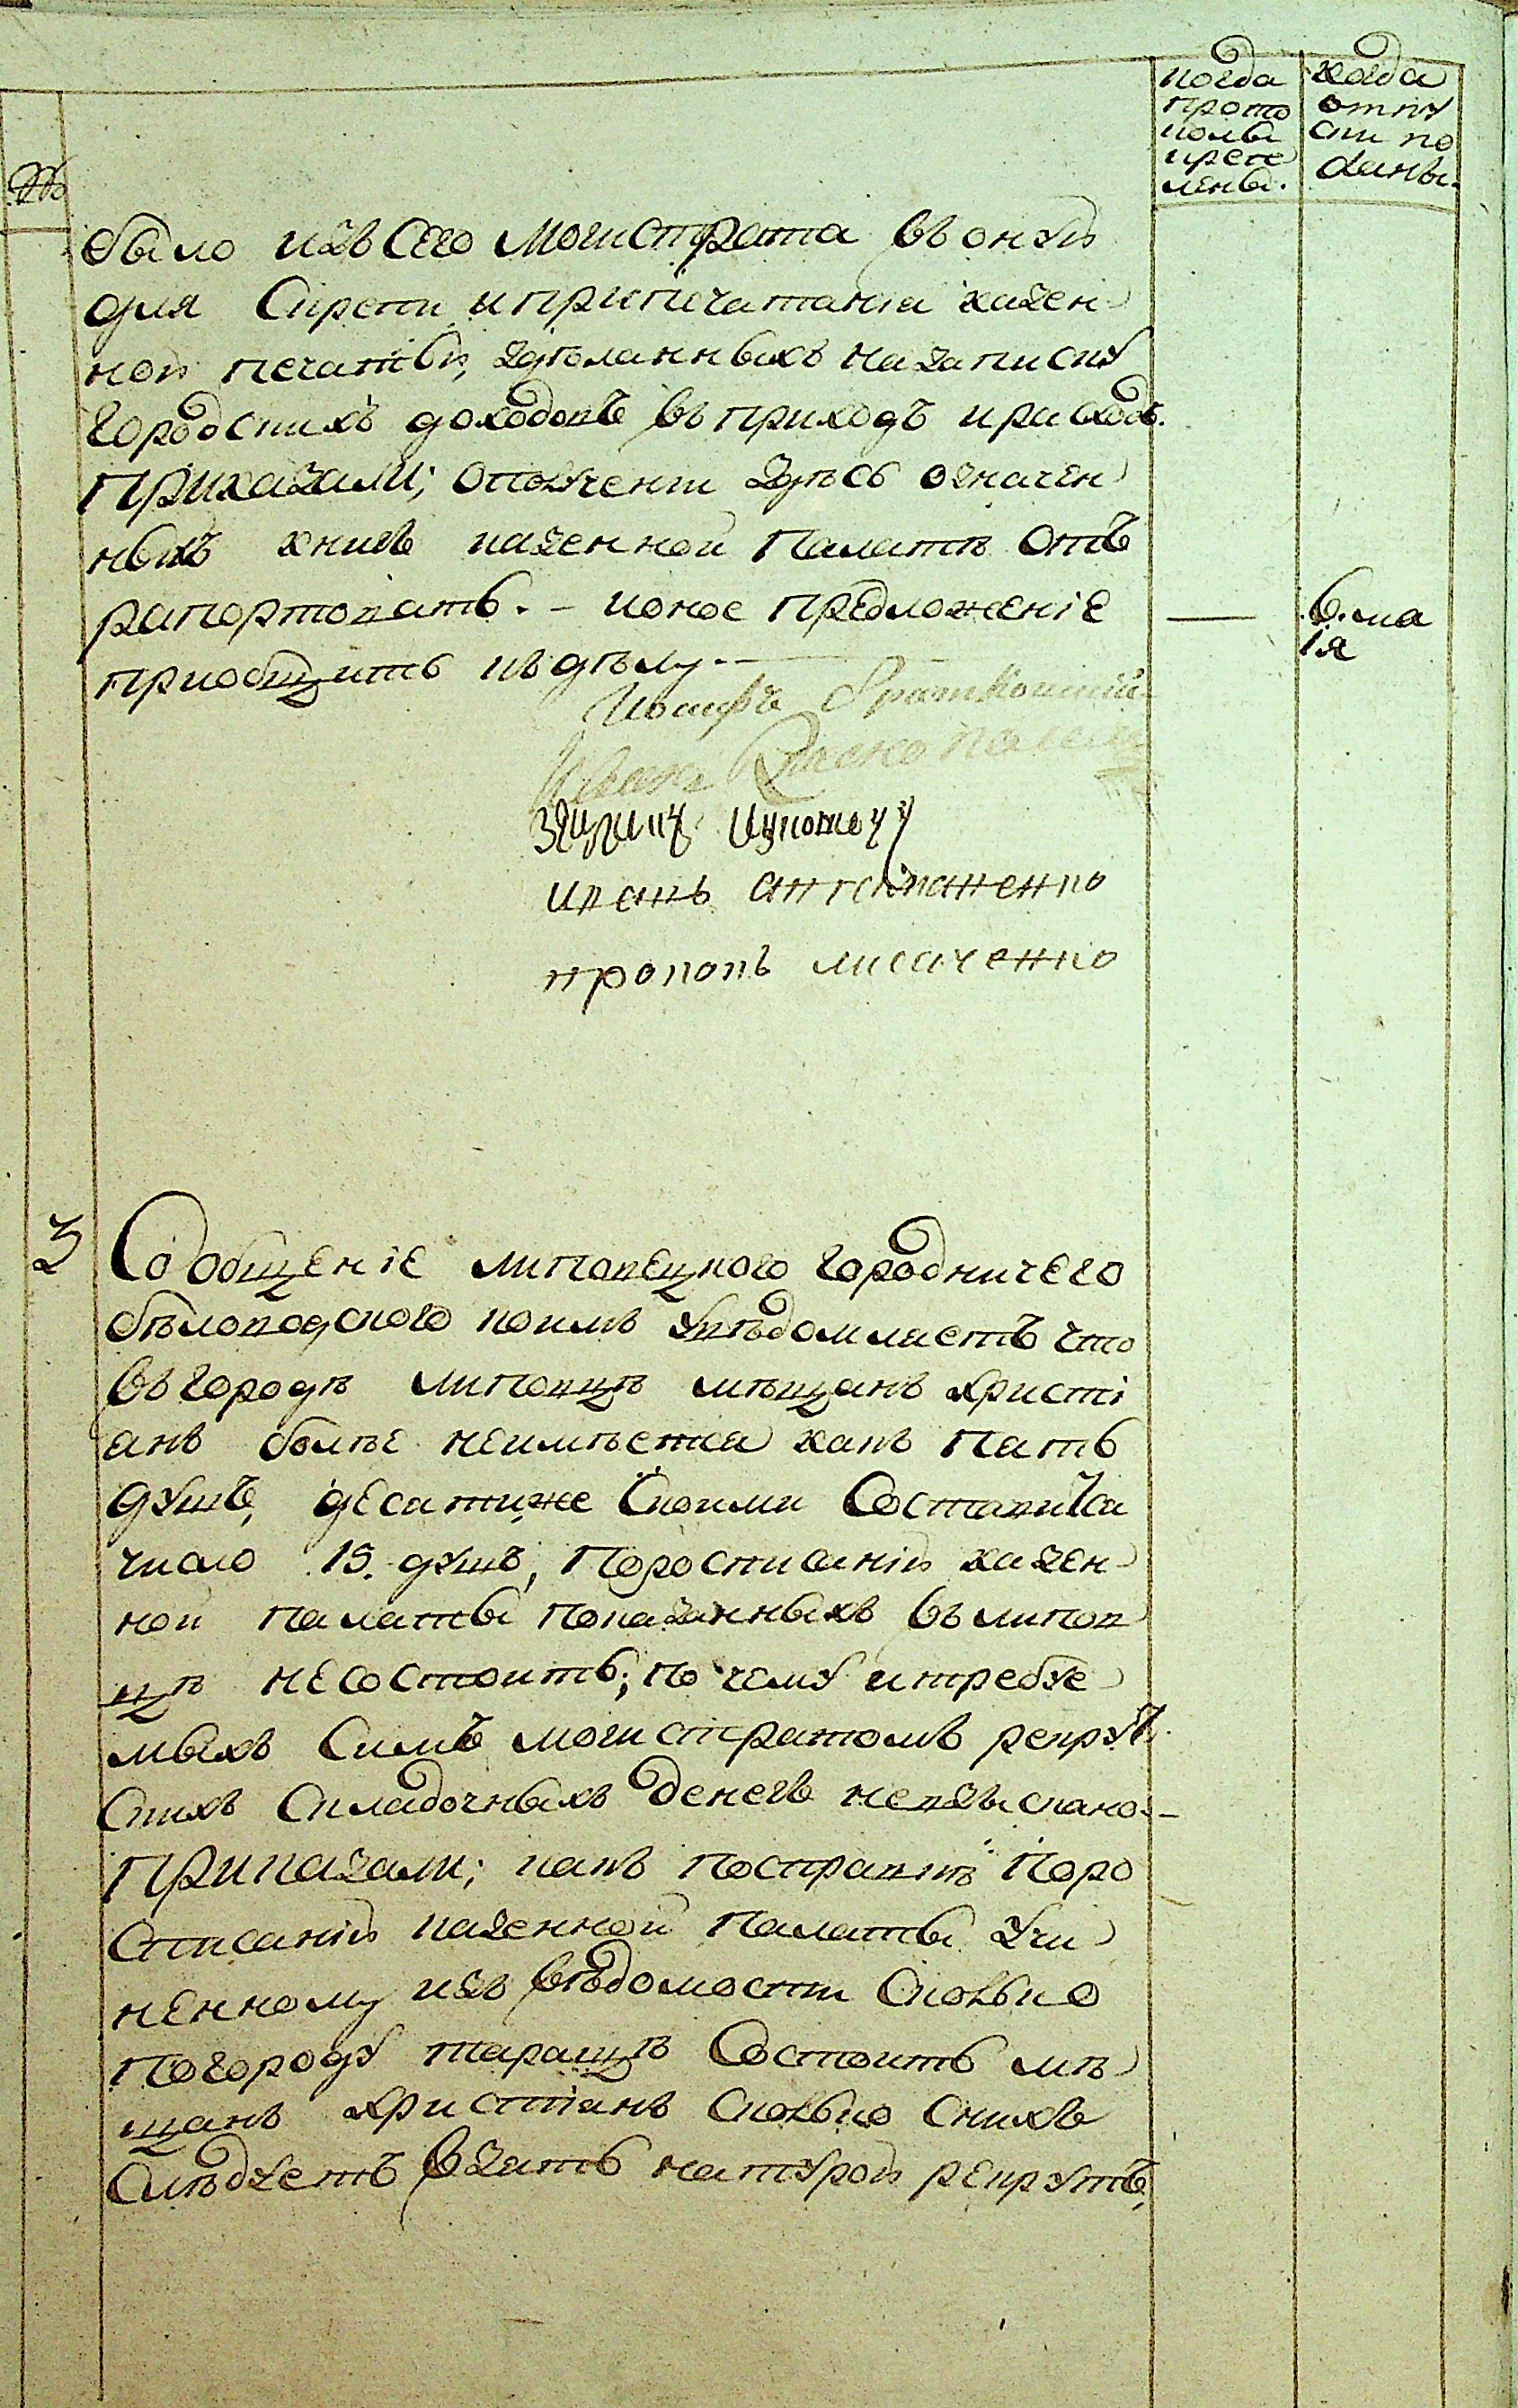 когда
прото
колы
креп
лены.
когда
отпу
ски по
даны.
№
было изъ Сего Могистрата въ оную
для Скрепи и припечатания казен
ной печатью, зделанныхъ на записку
городскихъ доходовъ въ приходъ и расходъ.
Приказали; о получении здѣсь означен
ныхъ книгъ казенной Палатѣ отъ
рапортовать. – и оное предложение
приобщить къ дѣлу. —
6. ма
ія
Иосифъ
Иванъ
иванъ
прокопъ лисаченко
3
Сообщеніе липовецкого городничего
бѣловодского коимъ увѣдомляетъ что
въ городѣ липовцѣ мѣщанъ христі
анъ болѣе неимѣетца какъ пять
душъ, десятиже своими Составитъ
число 15. душъ, По росписанію казен
ной палаты показанныхъ въ липов
цѣ несостоитъ; по чему и требуе
мыхъ Симъ могистратомъ рекрут
скихъ складочныхъ денегъ невзыскано. –
Приказали; какъ поправить По ро
списанію казенной Палаты учи
ненному изъ вѣдомости сколько
По городу таращѣ Состоитъ мѣ
щанъ христіанъ сколько с нихъ
слѣдуетъ взять натурою рекрутъ,